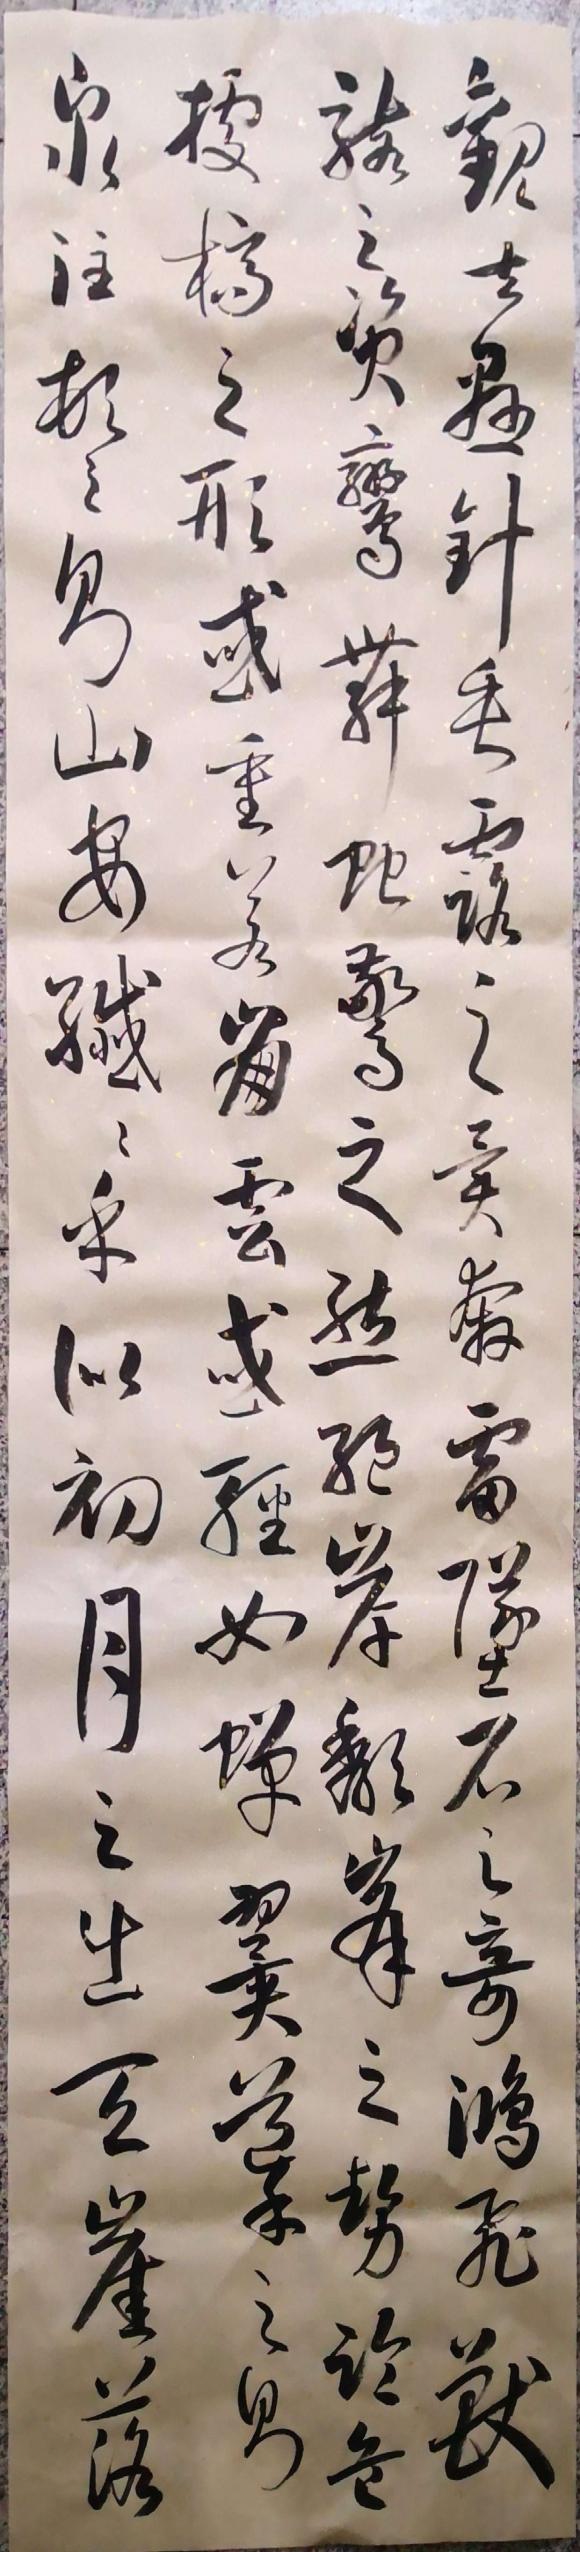 觀夫懸針垂露之異奔雷墜石之奇鴻飛獸
駭之資鸞舞蛇驚之態絕岸頹峯之勢臨危
據槁之形或重若崩雲或輕如蟬翼導之則
泉注頓之則山安纖〻乎似初月之出天崖落